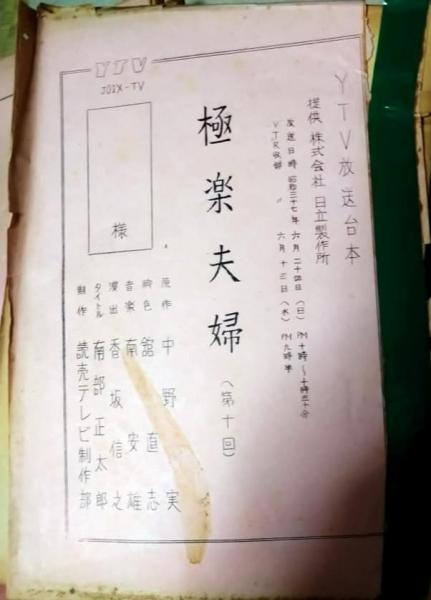 YTV
JOIX-TV
様
YTV放送台本
提供 株式会社 日立製作所
放送日時 昭和三十七年 六月二十四日(日) PM十時~十時三十分
VTR収録 〃 六月十三日(水) PM九時半
極楽夫婦(第十回)
原作 中野 実
脚色 舘 直志
音楽 南 安雄
演出 香坂信之
タイトル 南部正太郎
制作 読売テレビ制作部